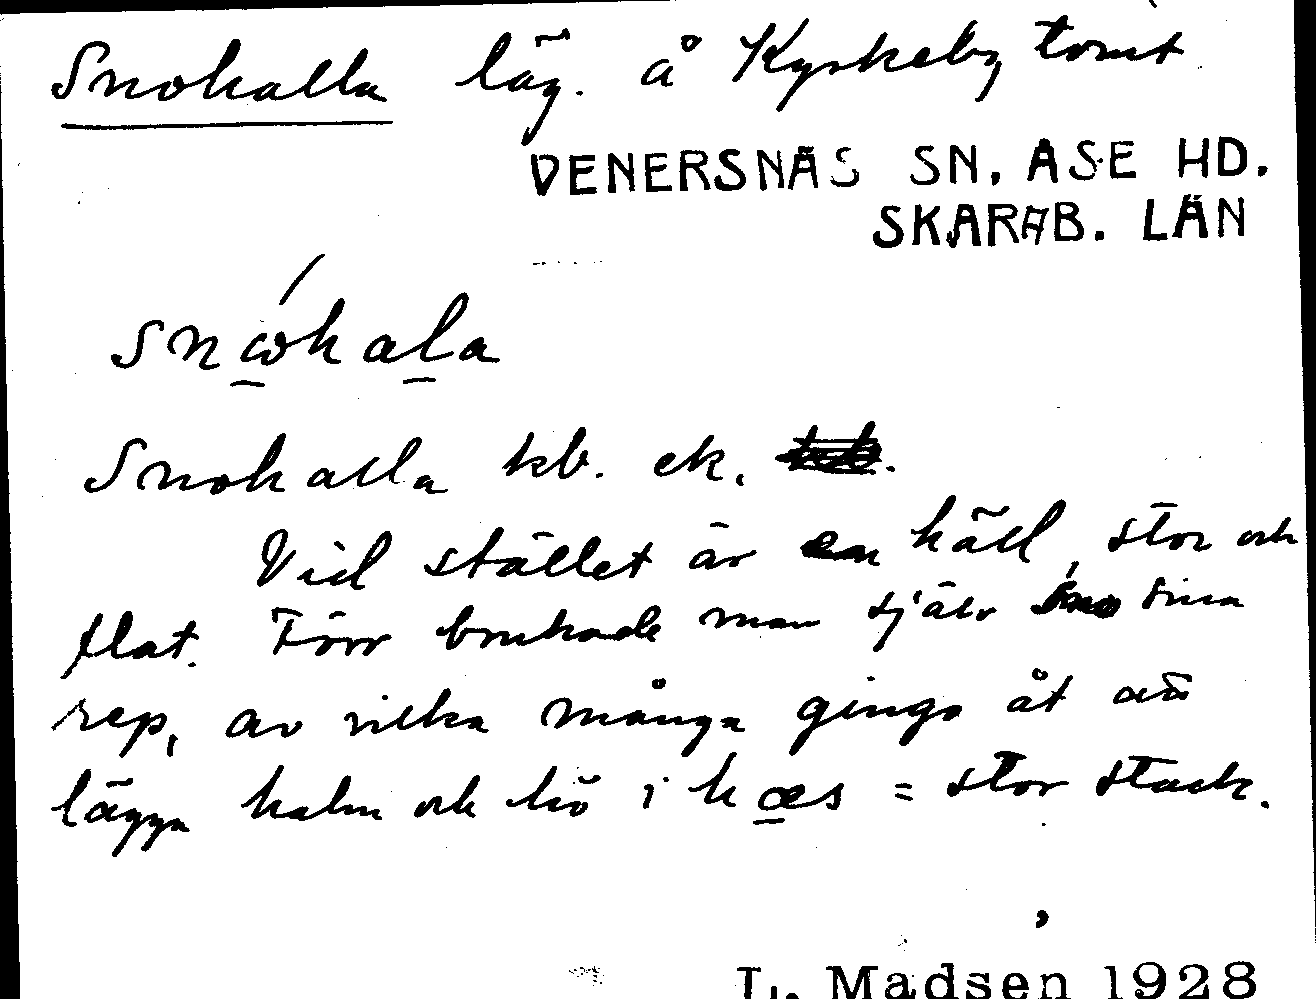 Snohalla läg. å Kyrkeby tomt
VENERSNÄS SN. ÅSE HD.
SKARAB. LÄN
snὼhala
Snohalla kb. ek.
Vid stället är en häll, stor och
flat. Förr brukade man själv sno sina
rep, av vilka många gingo åt att
lägga halm och hö i hæs = stor stack.
L. Madsen 1928